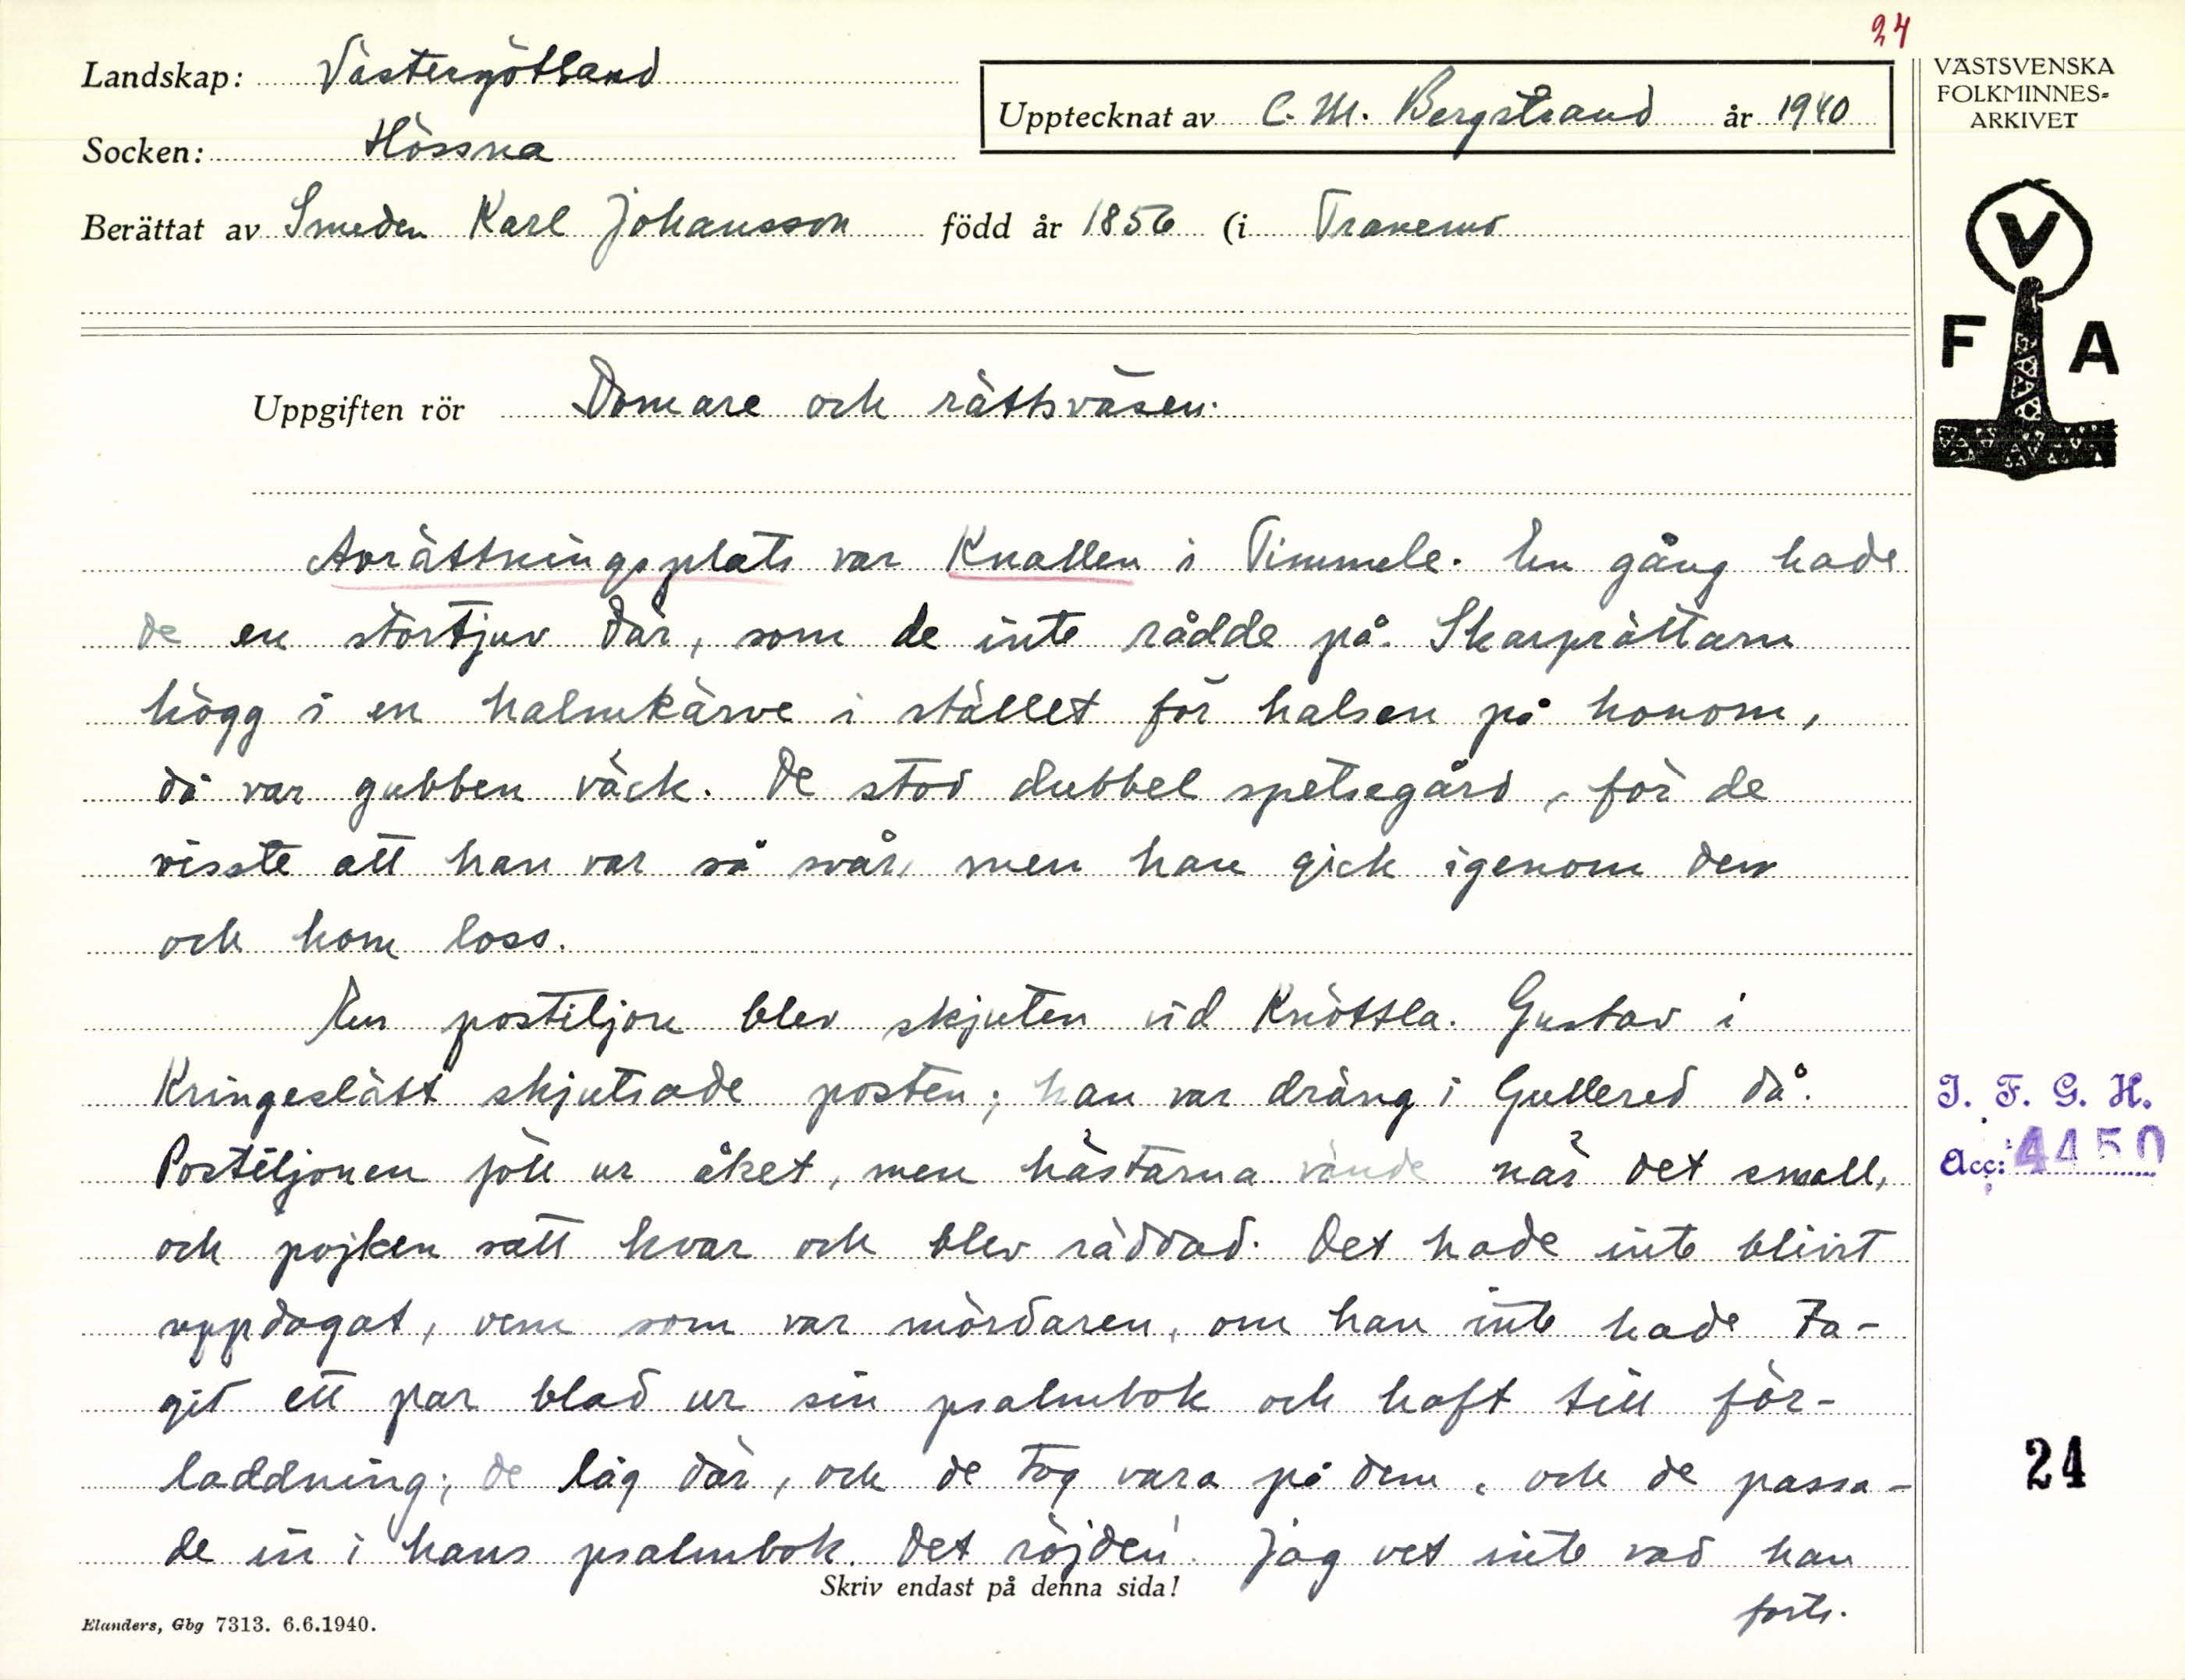 24
Landskap: Västergötland
Socken: Hössna
Upptecknat av C. M. Bergstrand år 1940
Berättat av Smeden Karl Johansson född år 1856 (i Tranemo
VÄSTSVENSKA
FOLKMINNES-
ARKIVET
V
F A
Uppgiften rör Domare och rättsväsen.
Avrättningsplats var Knallen i Timmele. En gång hade
de en stortjuv där, som de inte rådde på. Skarprättarn
högg i en halmkärve i stället för halsen på honom,
då var gubben väck. De stod dubbel spetsegård, för de
visste att han var så svår, men han gick igenom den
och kom loss.
En postiljon blev skjuten vid Knöttla. Gustav i
Kringeslätt skjutsade posten; han var dräng i Gullered då.
Postiljonen föll ur åket, men hästarna vände när det small,
och pojken satt kvar och blev räddad. Det hade inte blivit
uppdagat, vem som var mördaren, om han inte hade ta-
git ett par blad ur sin psalmbok och haft till för-
laddning; de låg där, och de tog vara på dem, och de passa-
de in i hans psalmbok. Det röjden! Jag vet inte vad han
forts.
Skriv endast på denna sida!
Elanders, Gbg 7313. 6.6.1940.
I. F. G. H.
Acc: 4450
24